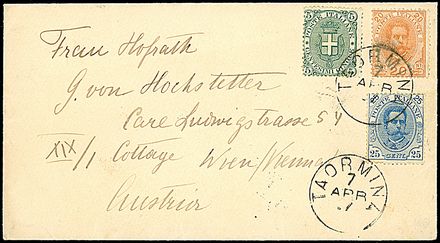 Frau Hofrath
G. von Hochstetter
Care Ludwigstrasse 54
XIX/1 Cottage Wien/Vienna/
Austria
5
POSTE ITALIANE
5
20
POSTE ITALIANE
20
TAORMINA
7
APR
25
POSTE ITALIANE
25
25 CENT. 25
TAORMINA
7
APR